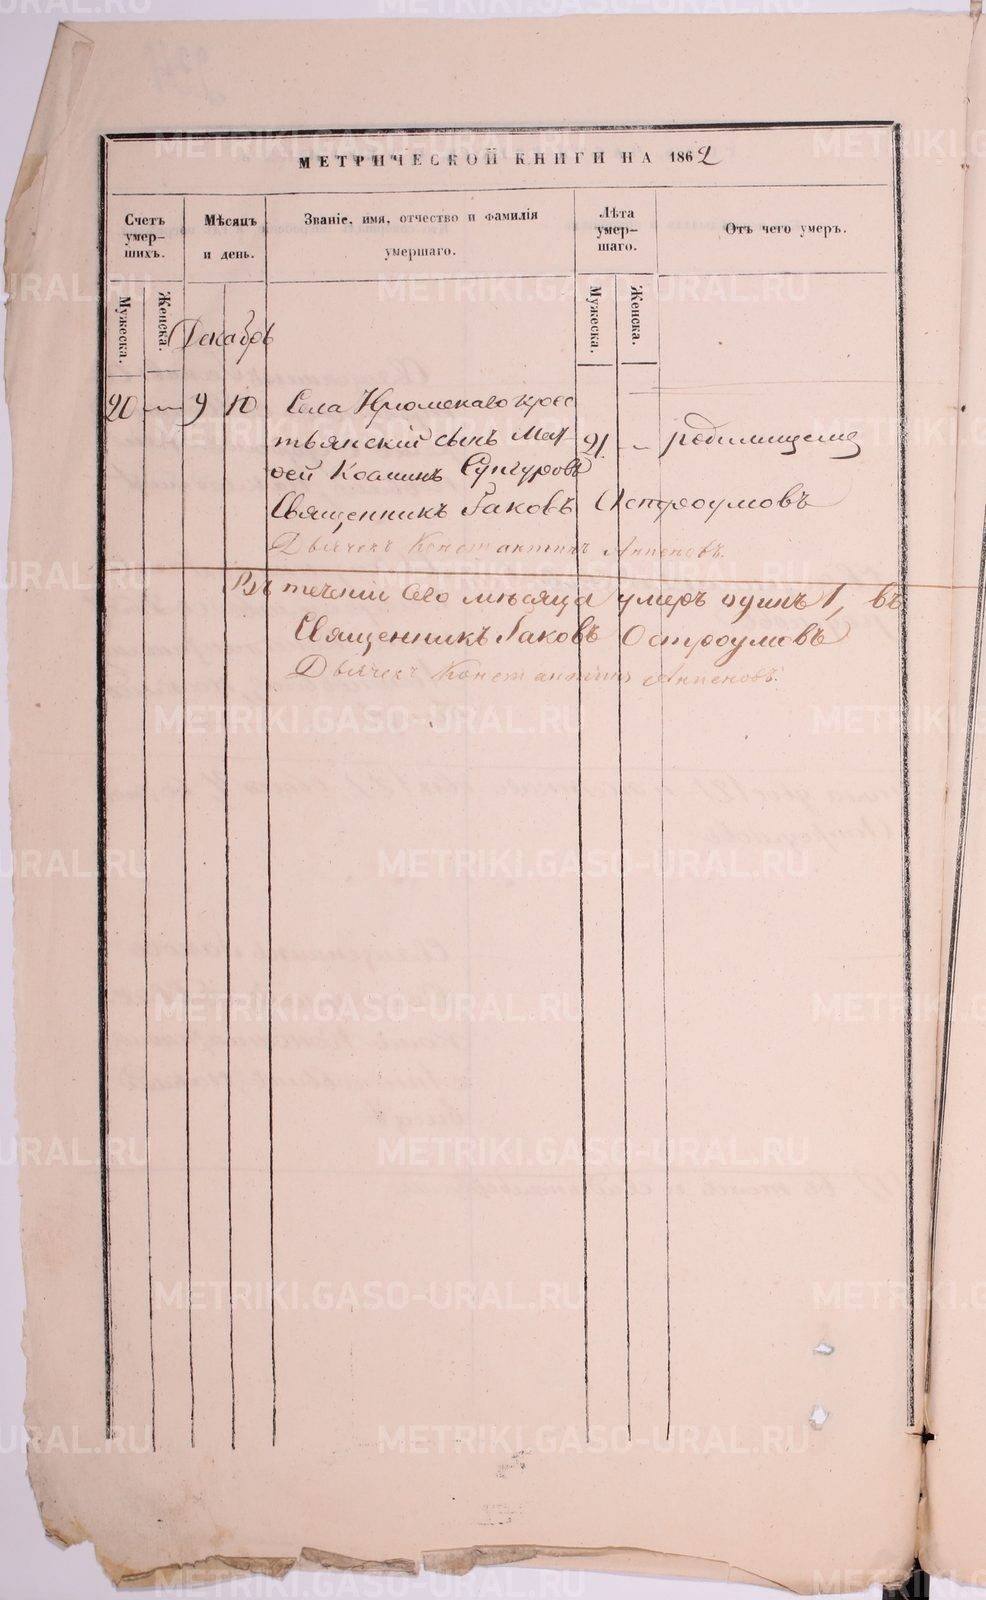 МЕТРИЧЕСКОЙ КНИГИ НА 1862
Счетъ умер-шихъ.
Мѣсяцъ и день.
Званіе, имя, отчество и фамилія умершаго.
Лѣта умер-шаго.
Отъ чего умеръ.
Мужеска.
Женска.
Мужеска.
Женска.
Декабрь
20 — 9 10 Села крес
тьянскій сынъ Мат- 21. — родимищемъ
ѳей Сунгуровъ
Священникъ Іаковъ Остроумовъ
Дьячекъ Константинъ
Въ теченіи сего мѣсяца умеръ одинъ 1, въ
Священникъ Іаковъ Остроумовъ
Дьячекъ Константинъ
METRIKI.GASO-URAL.RU